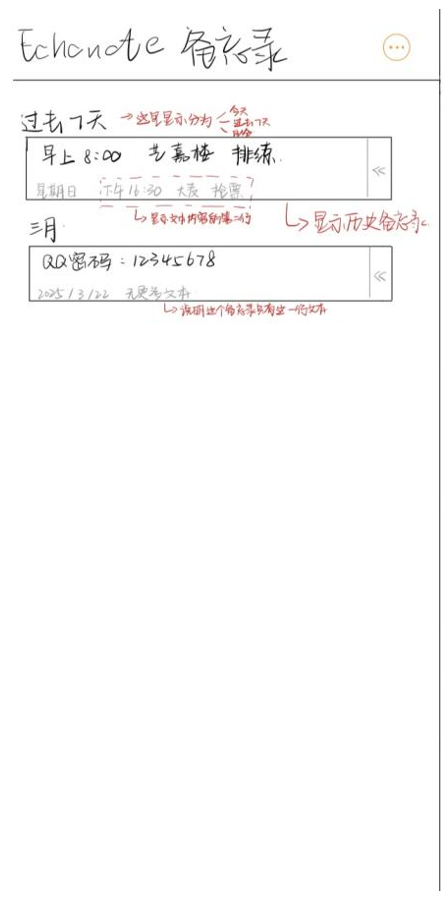 Echonote 备忘录
过去7天 → 这里显示分为 今天 过去7天 月份
早上 8:00 艺嘉楼 排练.
星期日 下午16:30 大表 检票
显示文本内容的第二行
显示历史备忘录.
三月.
QQ密码：12345678
2025/3/22 无更多文本
说明这个备忘录只有这一行文本